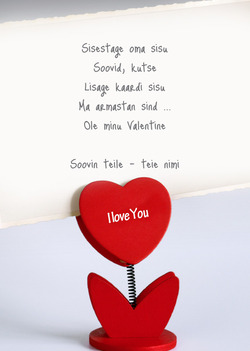 Sisestage oma sisu
Soovid, kutse
Lisage kaardi sisu
Ma armastan sind ...
Ole minu Valentine
Soovin teile - teie nimi
I love You